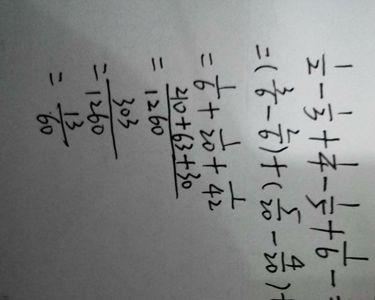 1/2 - 1/3 + 1/4 - 1/5 + 1/6 -
= (3/6 - 2/6) + (5/20 - 4/20) +
= 1/6 + 1/20 + 1/42
= (210+63+30)/1260
= 303/1260
= 13/60